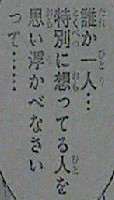 誰か一人…
特別に想ってる人を
思い浮かべなさい
って……